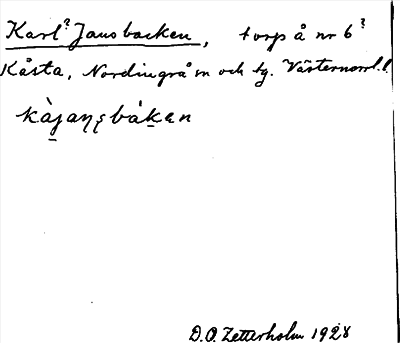 Karl? Jansbacken, torp å nr 6?
Kåsta, Nordingrå sn och tg. Västernorrl. l.
kàjaņșbáken
D.O. Zetterholm 1928